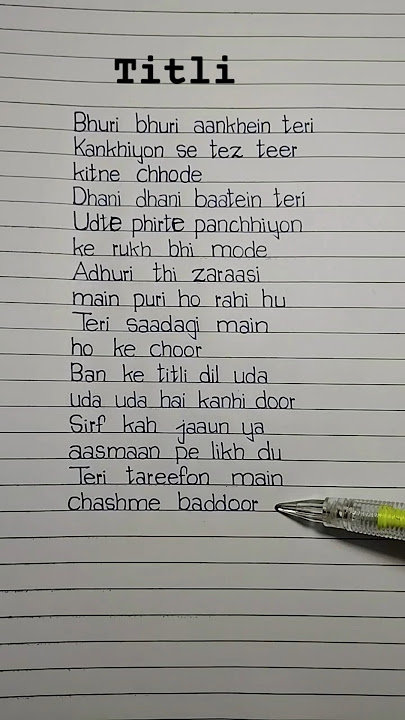 Titli
Bhuri bhuri aankhein teri
Kankhiyon se tez teer
kitne chhode
Dhani dhani baatein teri
Udte phirte panchhiyon
ke rukh bhi mode
Adhuri thi zaraasi
main puri ho rahi hu
Teri saadagi main
ho ke choor
Ban ke titli dil uda
uda uda hai kanhi door
Sirf kah jaaun ya
aasmaan pe likh du
Teri tareefon main
chashme baddoor